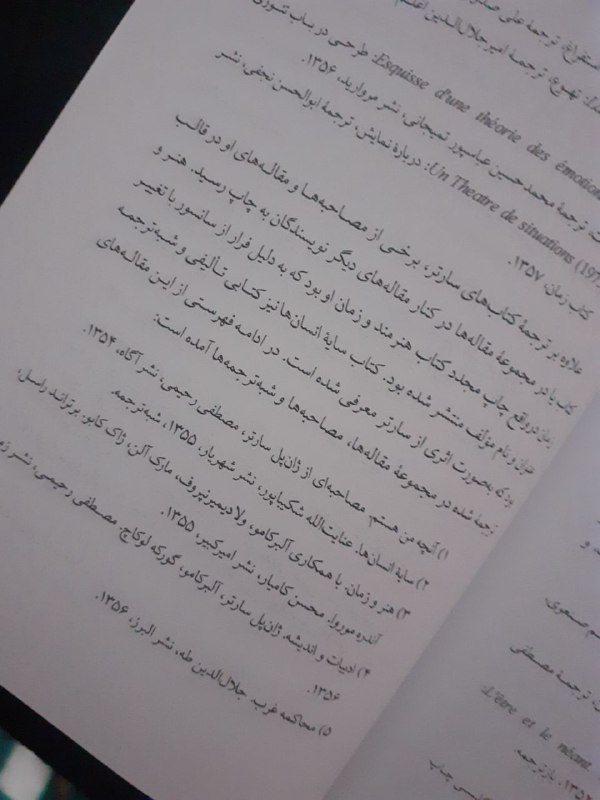 استفراغ، ترجمه علی
تهوع، ترجمه امیرجلال‌الدین اعلم
Esquisse d'une théorie des émotions: طرحی در باب تئوری
ترجمهٔ محمدحسین عباسپور تمیجانی، نشر مروارید، ۱۳۵۶.
Un Theatre de situations (197: دربارهٔ نمایش، ترجمهٔ ابوالحسن نجفی، نشر
کتاب زمان، ۱۳۵۷.
علاوه بر ترجمهٔ کتاب‌های سارتر، برخی از مصاحبه‌ها و مقاله‌های او در قالب
کتاب یا در مجموعهٔ مقاله‌ها در کنار مقاله‌های دیگر نویسندگان به چاپ رسید. هنر و
زمان درواقع چاپ مجدد کتاب هنرمند و زمان او بود که به دلیل فرار از سانسور با تغییر
عنوان و نام مؤلف منتشر شده بود. کتاب سایهٔ انسان‌ها نیز کتابی تألیفی و شبه‌ترجمه
بود که به‌صورت اثری از سارتر معرفی شده است. در ادامه فهرستی از این مقاله‌های
ترجمه شده در مجموعهٔ مقاله‌ها، مصاحبه‌ها و شبه‌ترجمه‌ها آمده است:
۱) آنچه من هستم. مصاحبه‌ای از ژان‌پل سارتر، مصطفی رحیمی، نشر آگاه، ۱۳۵۴.
۲) سایهٔ انسان‌ها. عنایت‌الله شکیباپور، نشر شهریار، ۱۳۵۵، شبه‌ترجمه.
۳) هنر و زمان. با همکاری آلبرکامو، ولادیمیرنیروف، مارک آلن، ژاک کابو، برتراند راسل،
آندره موروا. محسن کامیار، نشر امیرکبیر، ۱۳۵۵.
۴) ادبیات و اندیشه. ژان‌پل سارتر، آلبرکامو، گورکه لوکاچ. مصطفی رحیمی، نشر
۱۳۵۶.
۵) محاکمه غرب. جلال‌الدین طه، نشر البرز، ۱۳۵۶.
ترجمهٔ مصطفی
L'être et le néant
بازترجمه